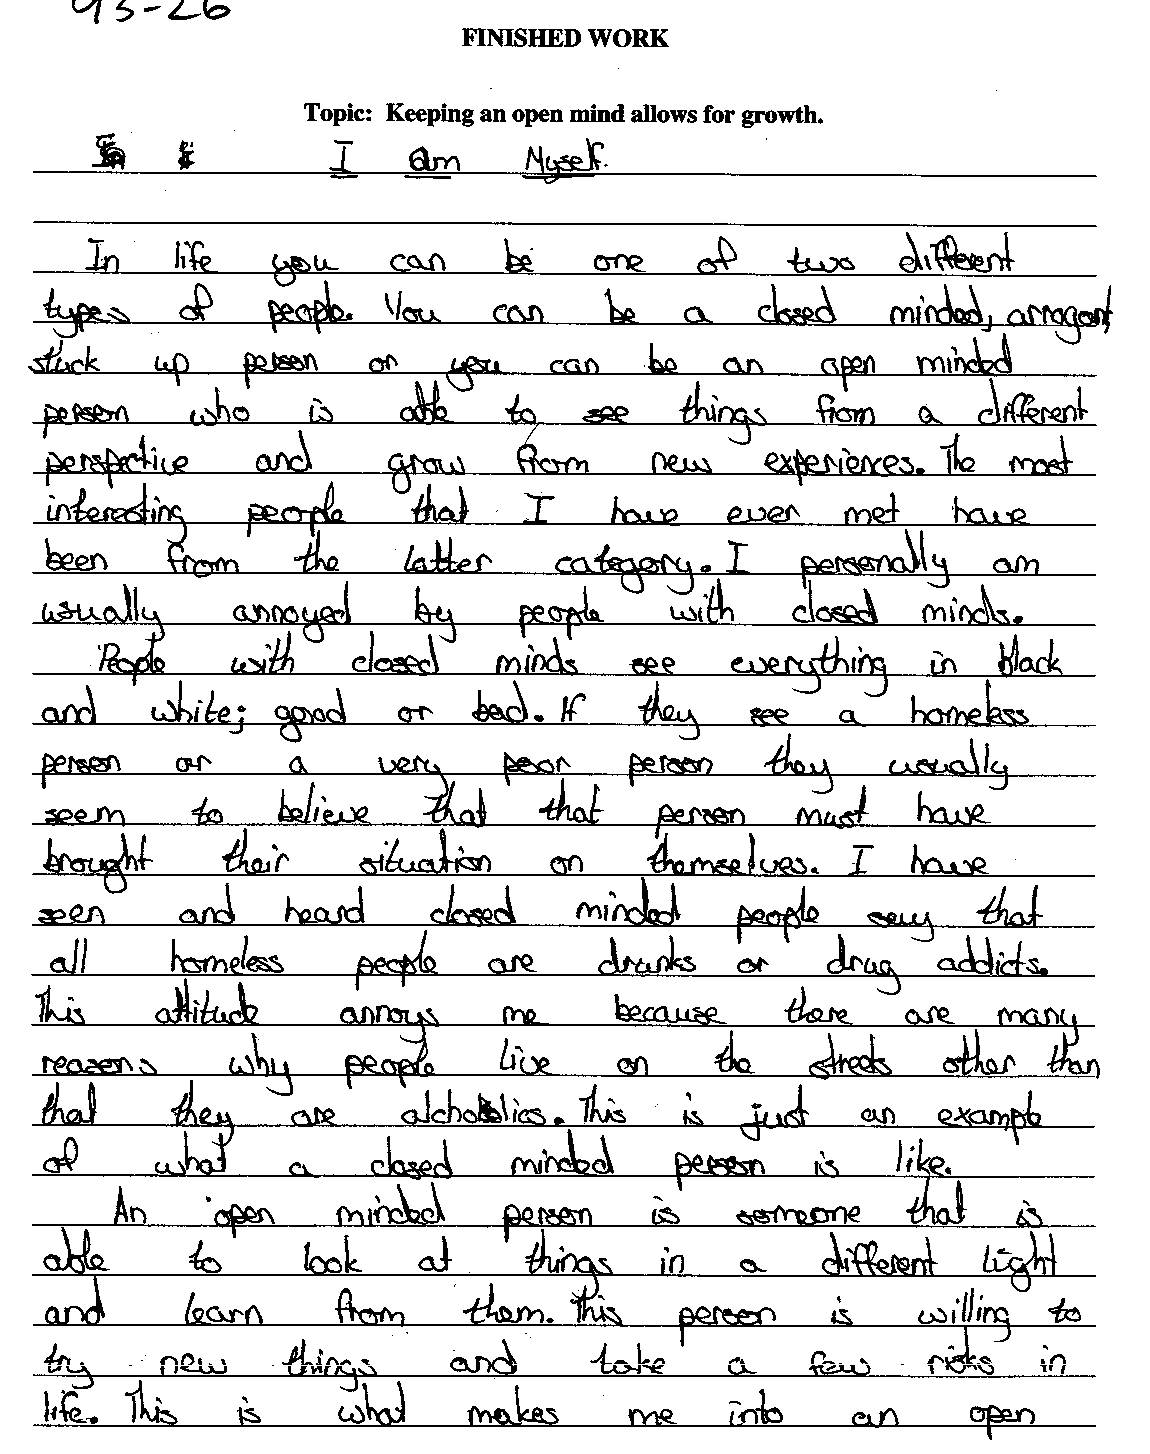 93-26
FINISHED WORK
Topic: Keeping an open mind allows for growth.
I am Myself.
In life you can be one of two different
types of people. You can be a closed minded, arrogant,
stuck up person or you can be an open minded
person who is able to see things from a different
perspective and grow from new experiences. The most
interesting people that I have ever met have
been from the latter category. I personally am
usually annoyed by people with closed minds.
People with closed minds see everything in black
and white; good or bad. If they see a homeless
person or a very poor person they usually
seem to believe that that person must have
brought their situation on themselves. I have
seen and heard closed minded people say that
all homeless people are drunks or drug addicts.
This attitude annoys me because there are many
reasons why people live on the streets other than
that they are alchoholics. This is just an example
of what a closed minded person is like.
An open minded person is someone that is
able to look at things in a different light
and learn from them. This person is willing to
try new things and take a few risks in
life. This is what makes me into an open